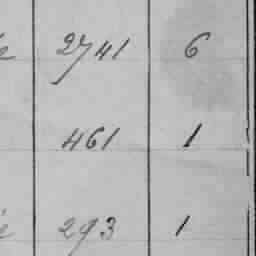 2741 6
461 1
293 1